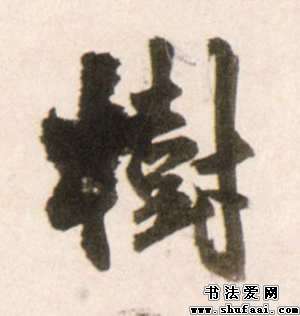 樹
书法爱网
www.shufaai.com